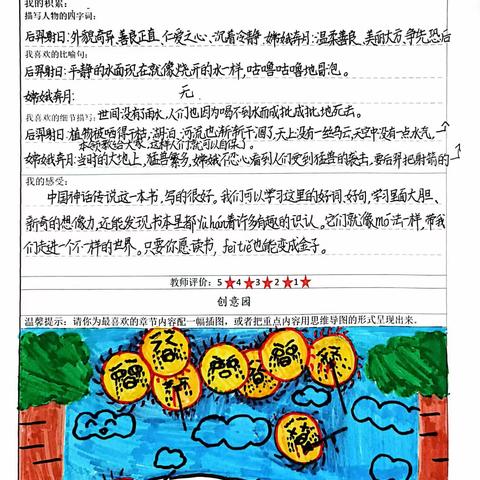 我的积累:
描写人物的四字词:
后羿射日:外貌奇异、善良正直、仁爱之心、沉着冷静.嫦娥奔月:温柔善良、美丽大方、争先恐后
我喜欢的比喻句:
后羿射日:平静的水面现在就像烧开的水一样,咕噜咕噜地冒泡。
嫦娥奔月: 无.
我喜欢的细节描写: 世间没有雨水,人们也因为喝不到水而成批成批地死去。
后羿射日:植物被晒得干枯,湖泊、河流也渐渐干涸了天上没有一丝乌云,天空中没有一点水汽。
本领教给大家,这样人们就可以自保了。
嫦娥奔月:当时的大地上,猛兽繁多,嫦娥不忍心看到人们受到猛兽的袭击,要后羿把射箭的
我的感受:
中国神话传说这一本书,写的很好。我们可以学习这里的好词、好句,学习里面大胆、
新奇的想像力,还能发现书本里都yùhán着许多有趣的识认。它们就像mó法一样,带我
们走进一个不一样的世界。只要你愿读书,fèi tiě也能变成金子。
教师评价:5★4★3★2★1★
创意园
温馨提示:请你为最喜欢的章节内容配一幅插图,或者把重点内容用思维导图的形式呈现出来。